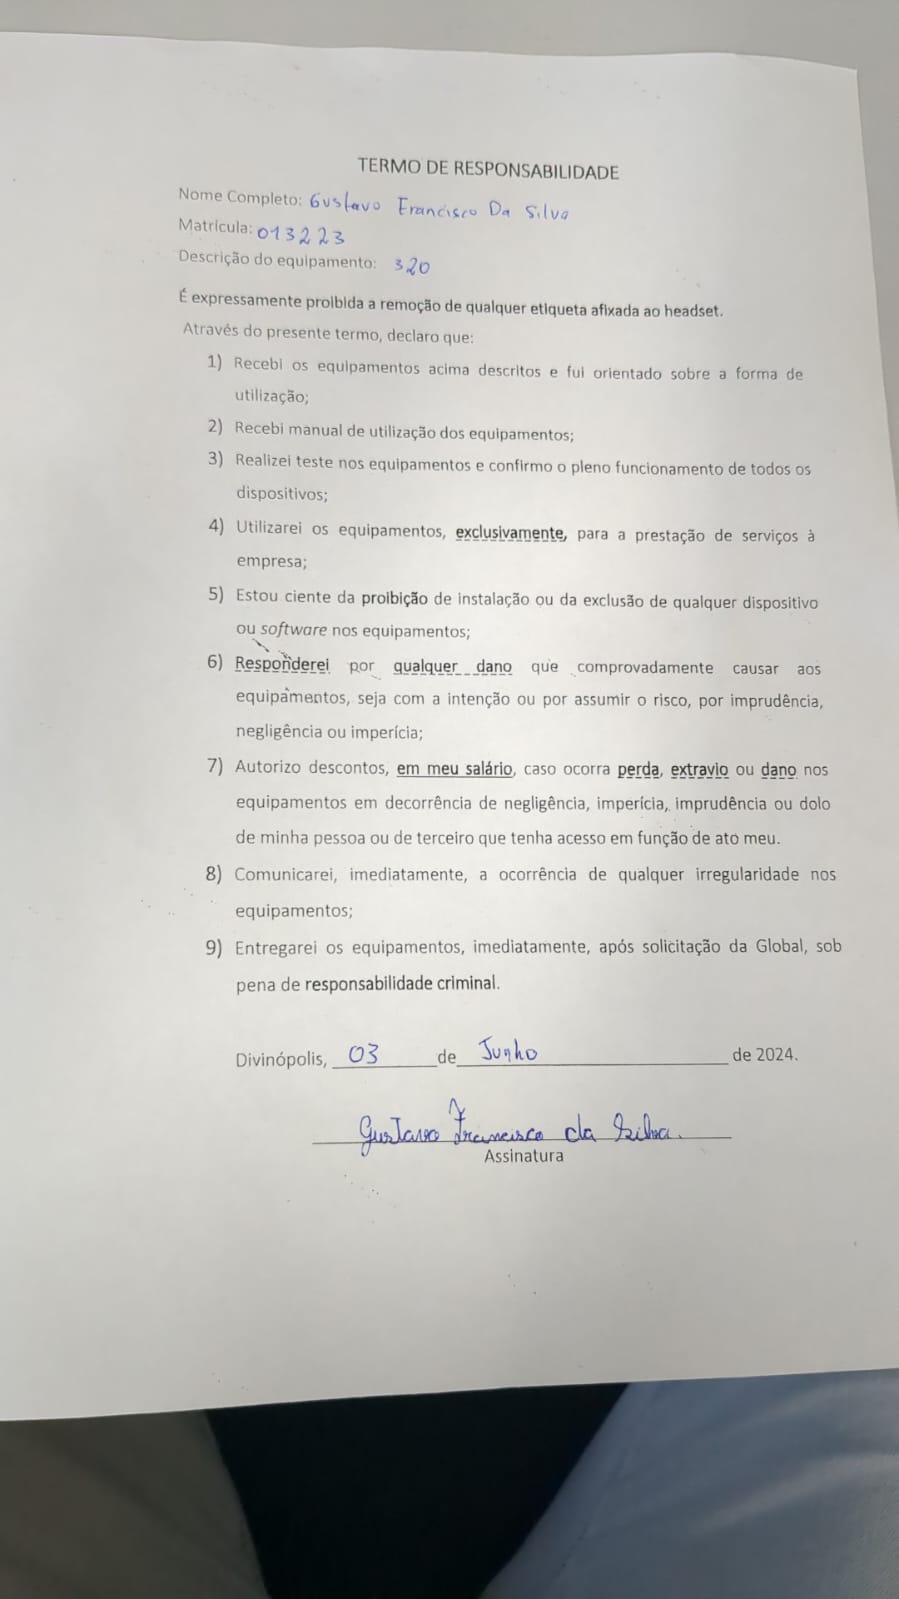 TERMO DE RESPONSABILIDADE
Nome Completo: Gustavo Francisco Da Silva
Matrícula: 013223
Descrição do equipamento: 320
É expressamente proibida a remoção de qualquer etiqueta afixada ao headset.
Através do presente termo, declaro que:
1) Recebi os equipamentos acima descritos e fui orientado sobre a forma de
utilização;
2) Recebi manual de utilização dos equipamentos;
3) Realizei teste nos equipamentos e confirmo o pleno funcionamento de todos os
dispositivos;
4) Utilizarei os equipamentos, exclusivamente, para a prestação de serviços à
empresa;
5) Estou ciente da proibição de instalação ou da exclusão de qualquer dispositivo
ou software nos equipamentos;
6) Responderei por qualquer dano que comprovadamente causar aos
equipamentos, seja com a intenção ou por assumir o risco, por imprudência,
negligência ou imperícia;
7) Autorizo descontos, em meu salário, caso ocorra perda, extravio ou dano nos
equipamentos em decorrência de negligência, imperícia, imprudência ou dolo
de minha pessoa ou de terceiro que tenha acesso em função de ato meu.
8) Comunicarei, imediatamente, a ocorrência de qualquer irregularidade nos
equipamentos;
9) Entregarei os equipamentos, imediatamente, após solicitação da Global, sob
pena de responsabilidade criminal.
Divinópolis, 03 de Junho de 2024.
Gustavo Francisco da Silva.
Assinatura